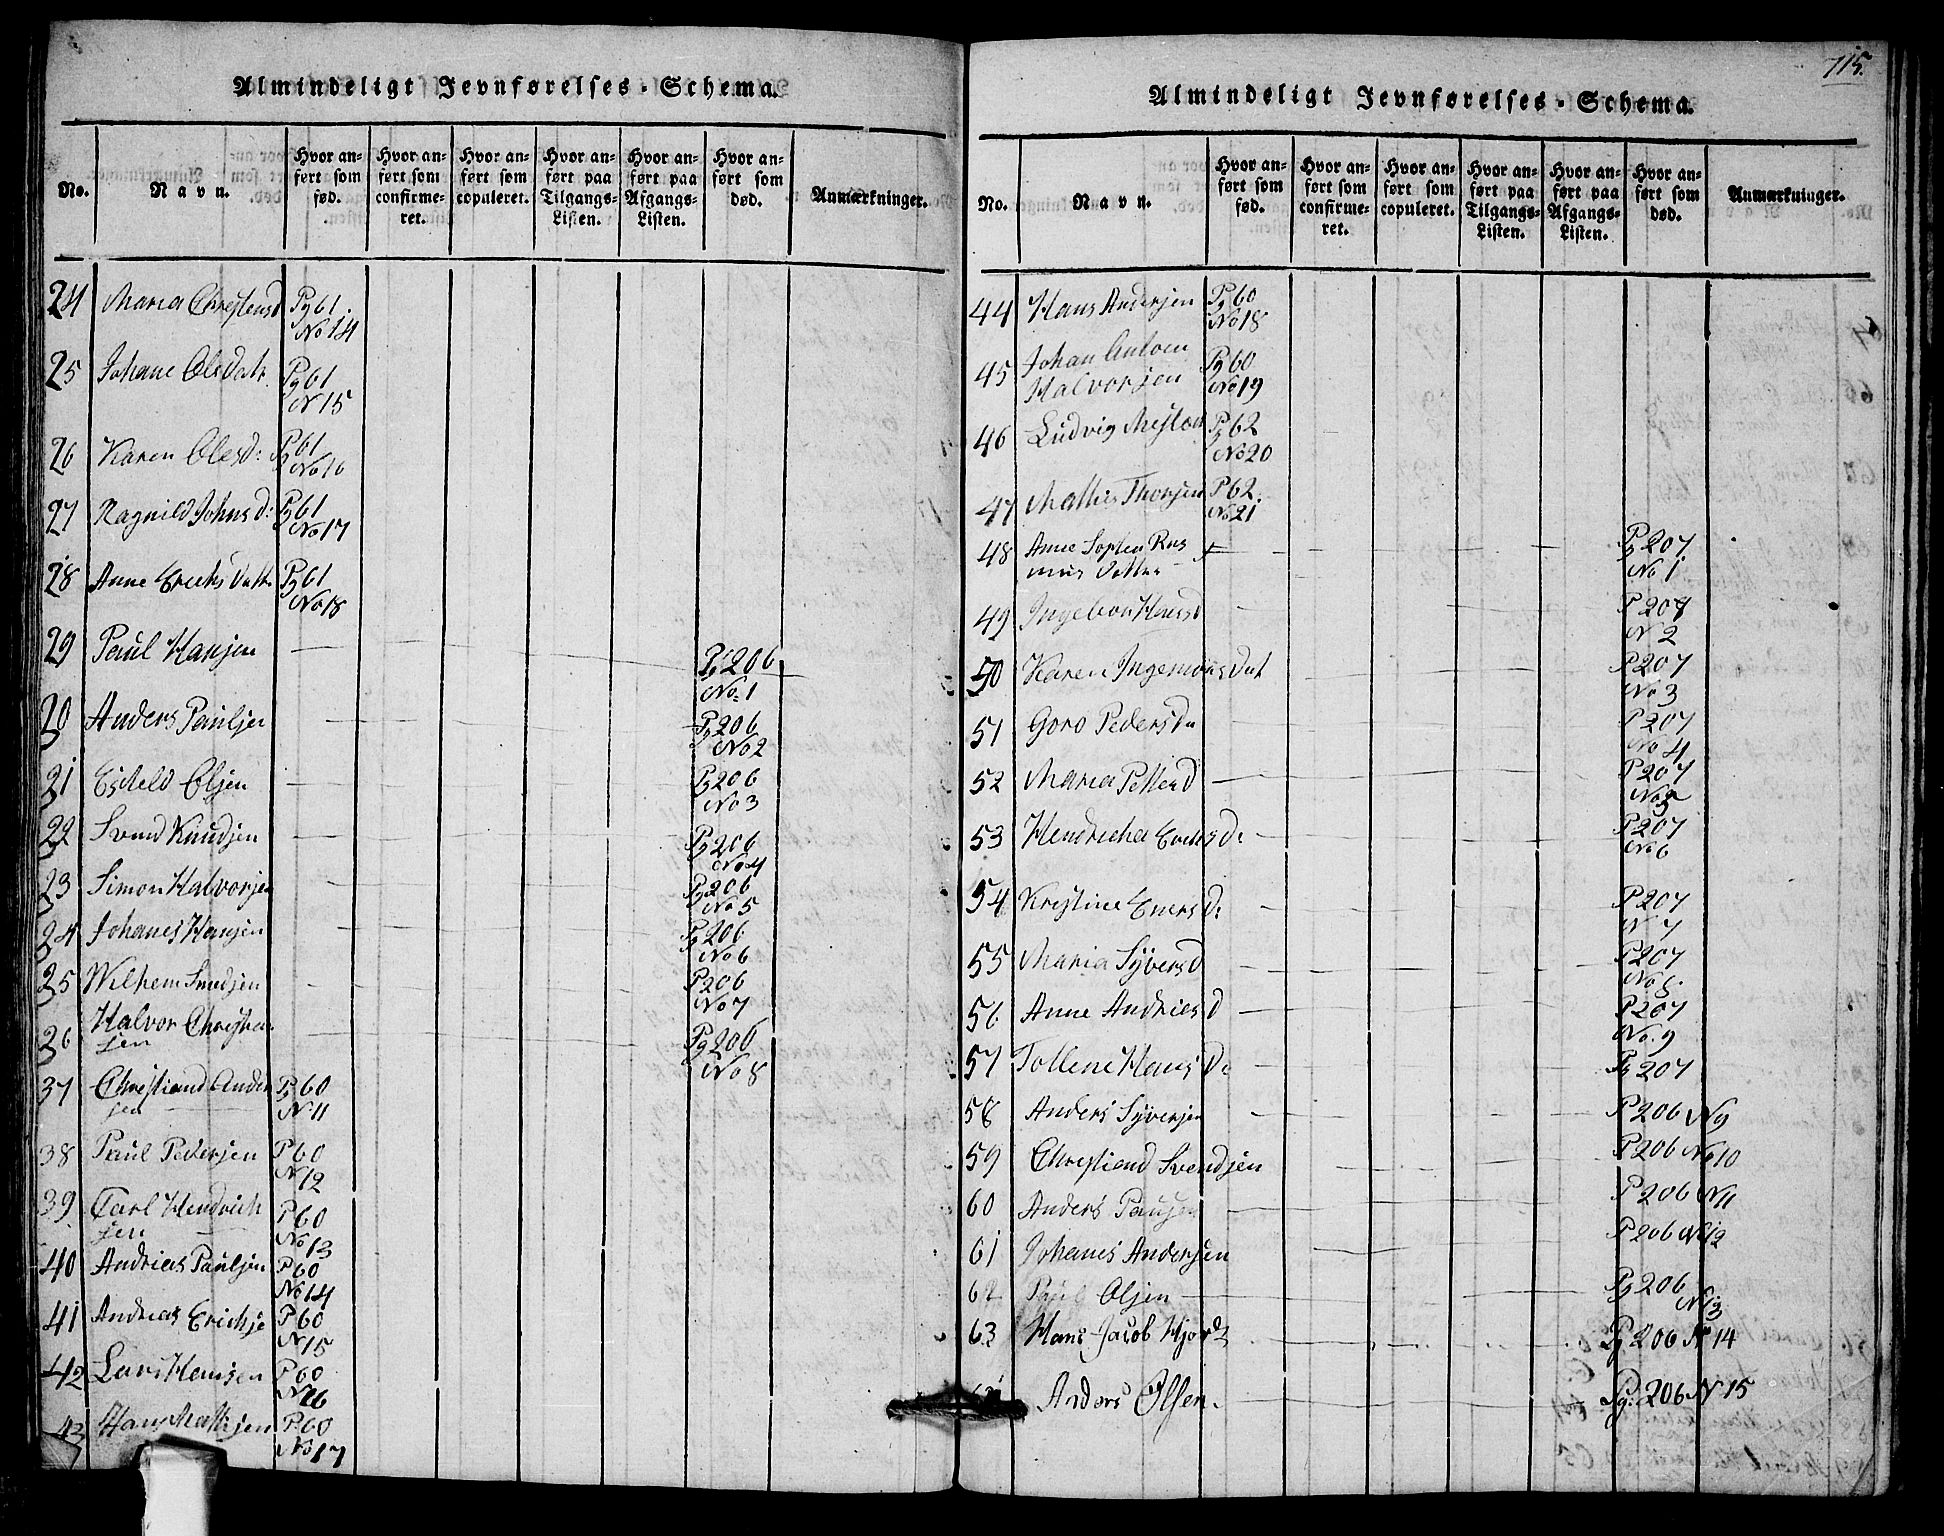 Almindeligt Jevnførelses-Schema.
No.
Navn.
Hvor an-
ført som
fød.
Hvor an-
ført som
confirme-
ret.
Hvor an-
ført som
copuleret.
Hvor an-
ført paa
Tilgangs-
Listen.
Hvor an-
ført paa
Afgangs-
Listen.
Hvor an-
ført som
død.
Anmærkninger.
24 Maria Christensd Pg 61.
No 14
25 Johane Olsdatr Pg 61
N 15
26 Karen Olesd: Pg 61
No 16
27 Ragnild Johns d: Pg 61
No 17
28 Anne Erichs Dattr Pg 61
No 18
29 Paul Hansen Pg 206
No. 1
20 Anders Paulsen Pg 206
No 2
21 Eskeld Olsen Pg 206
No 3
22 Svend Knudsen Pg 206
No 4
23 Simon Halvorsen Pg 206
No 5
24 Johanes Hansen Pg 206
No 6
25 Wilhem Smedsen P 206
No 7
26 Halvor Christen
sen Pg 206
No 8
37 Christiand Ander
sen Pg 60
N 11
38 Paul Pedersen P 60
N 12
39 Carl Hendrich
sen P 60
No 13
40 Andrias Paulsen P 60
No 14
41 Andreas Erichse P 60
N 15
42 Lars Hansen P 60
N 16
43 Hans Mathsen P 60
No 17
115.
Almindeligt Jevnførelses-Schema.
No.
Navn.
Hvor an-
ført som
fød.
Hvor an-
ført som
confirme-
ret.
Hvor an-
ført som
copuleret.
Hvor an-
ført paa
Tilgangs-
Listen.
Hvor an-
ført paa
Afgangs-
Listen.
Hvor an-
ført som
død.
Anmærkninger.
44 Hans Andersen Pg 60
No 18
45 Johan
Halvorsen Pg 60
No 19
46 Ludvig Pg 62
No 20
47 Mathis Thorsen P 62.
No 21
48 Anne Sophea Ras
mus Datter Pg 207
No 1
49 Ingebor Hansd P 207
N 2
50 Karen Ingemous Dat P 207
No 3
51 Goro Peders Da P 207
No 4
52 Maria Petter D P 207
No 5
53 Hendricha Erichs D: P 207
No 6
54 Kristine Eners D: P 207
N 7
55 Maria Syvers D P 207
No 8.
56 Anne Andries D P 207
No. 9
57 Tollene Hans D: Pg 207
58 Anders Syversen P 206 N 9
59 Christiand Svendsen P 206 No 10
60 Anders Pausen P 206 N 11
61 Johanes Andersen P 206 N 12
62 Paul Olsen Pg 206
N 13
63 Hans Jacob Hjord Pg 206 No 14
Anders Olsen. Pg: 206 N 15